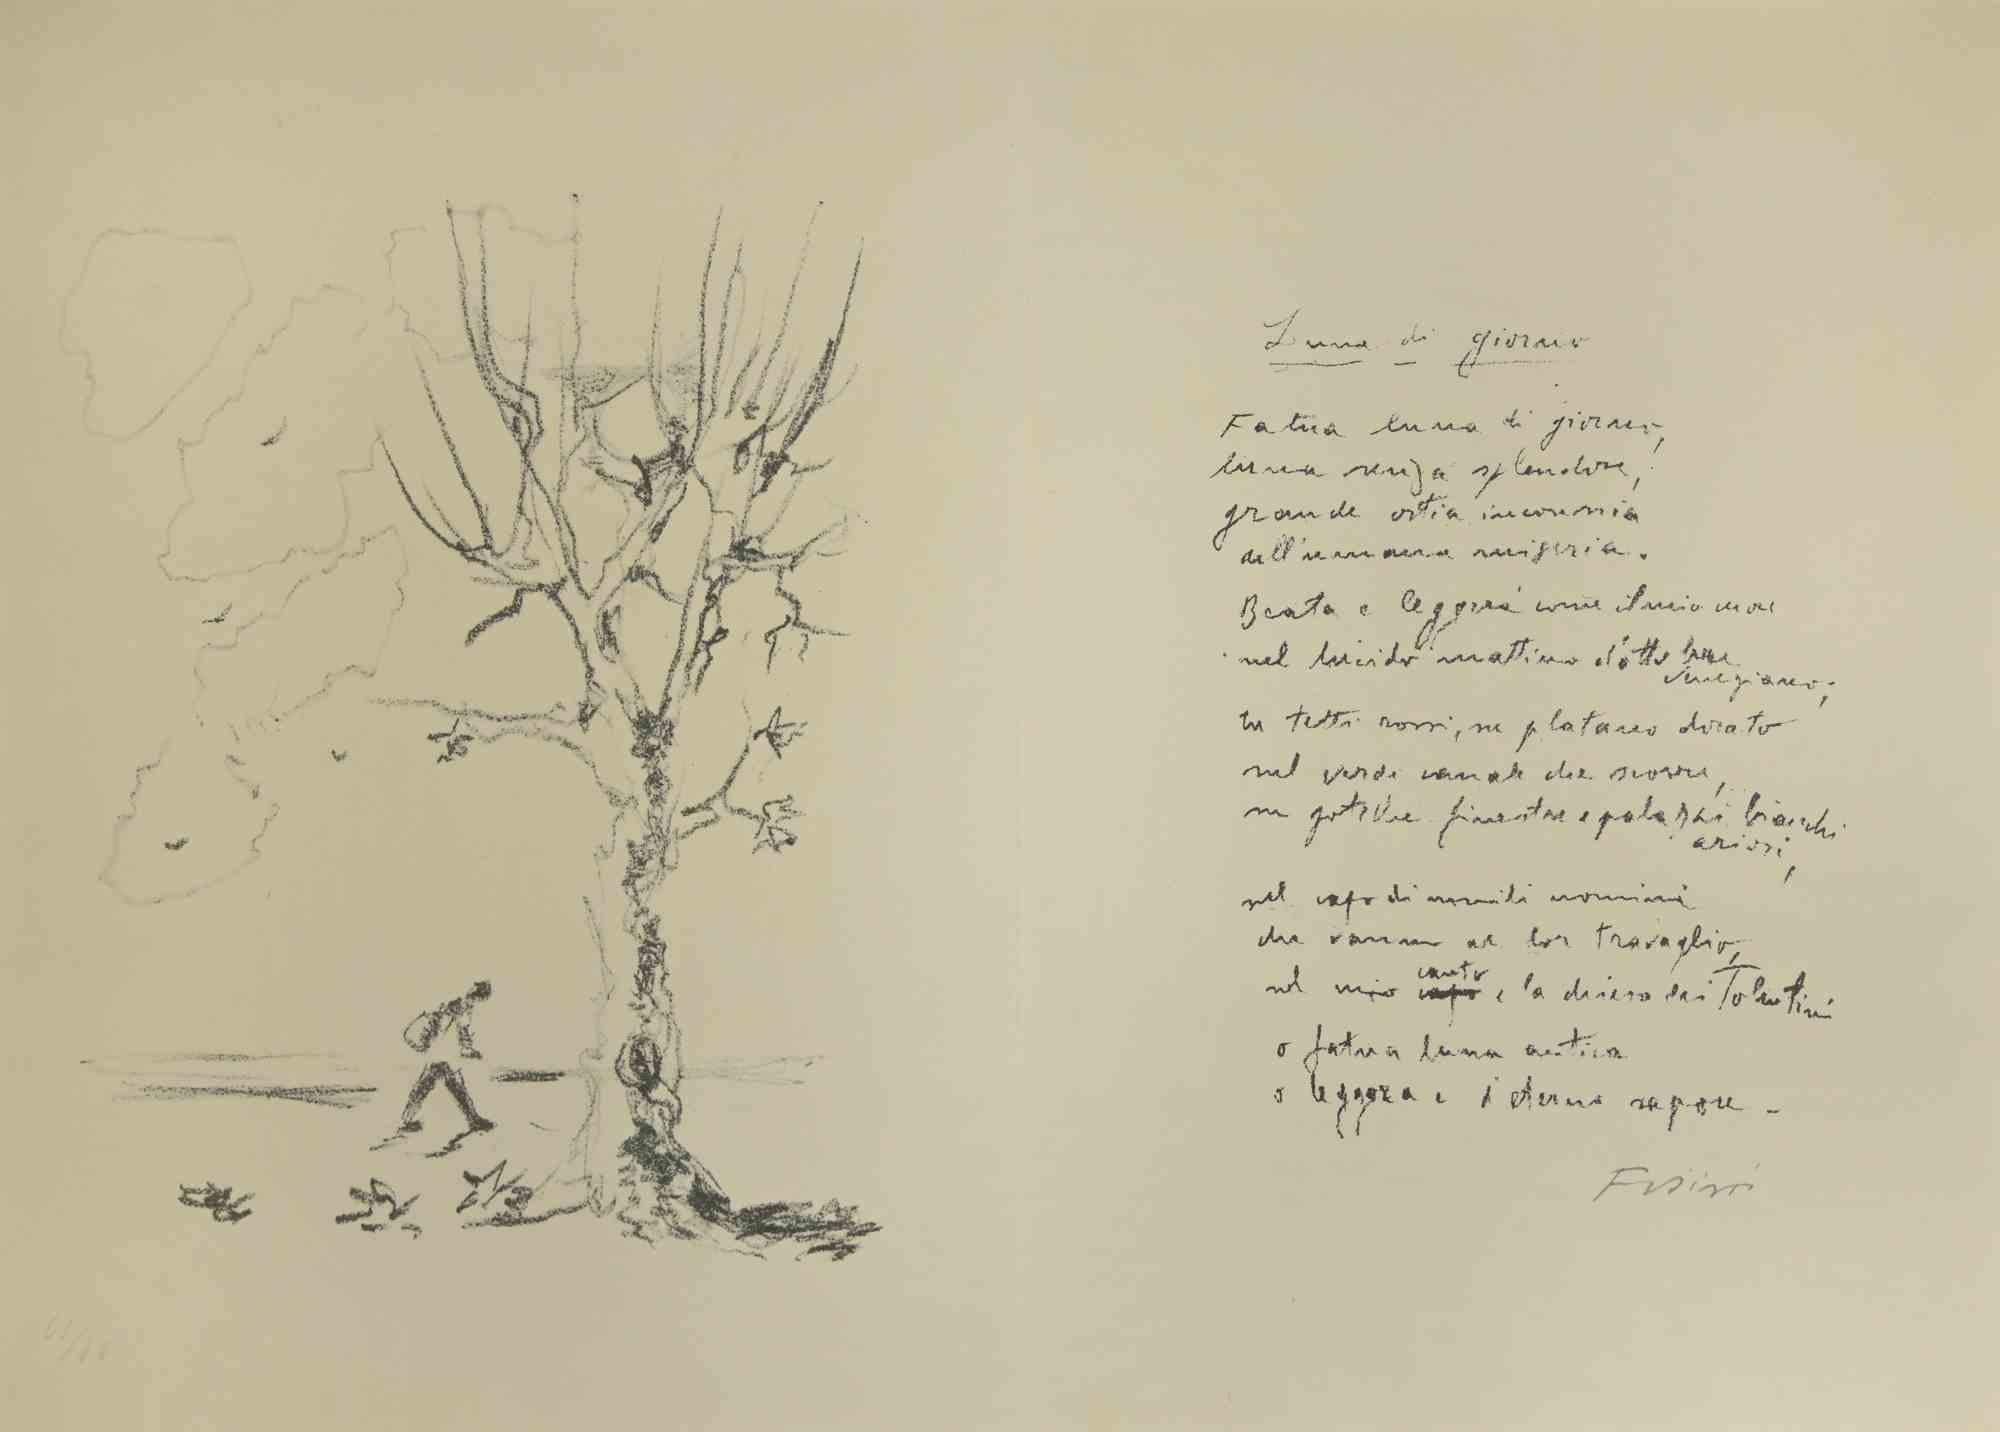 Luna di giorno
Fatua luna di giorno,
luna senza splendore,
grande ostia inconsunta
dell'umana miseria.
Beata e leggera come il mio cuore
nel lucido mattino d'ottobre
veneziano;
tu tetti rossi, su platano dorato
nel verde canale che scorre,
su gotiche finestre e palazzi bianchi
ariosi,
nel capo di umili uomini
che vanno al lor travaglio,
canto
nel mio capo e la chiesa dei Tolentini
o fatua luna antica
o leggera e d'eterno sapore -